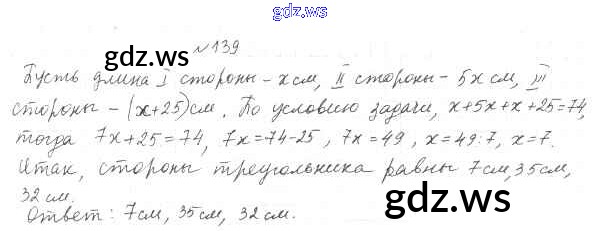 gdz.ws
№139
gdz.ws
Пусть длина I стороны - x см, II стороны - 5x см, III
стороны - (x+25) см. По условию задачи, x+5x+x+25=74,
тогда 7x+25=74, 7x=74-25, 7x=49, x=49:7, x=7.
Итак, стороны треугольника равны 7см, 35см,
32 см.
Ответ: 7см, 35см, 32 см.
gdz.ws